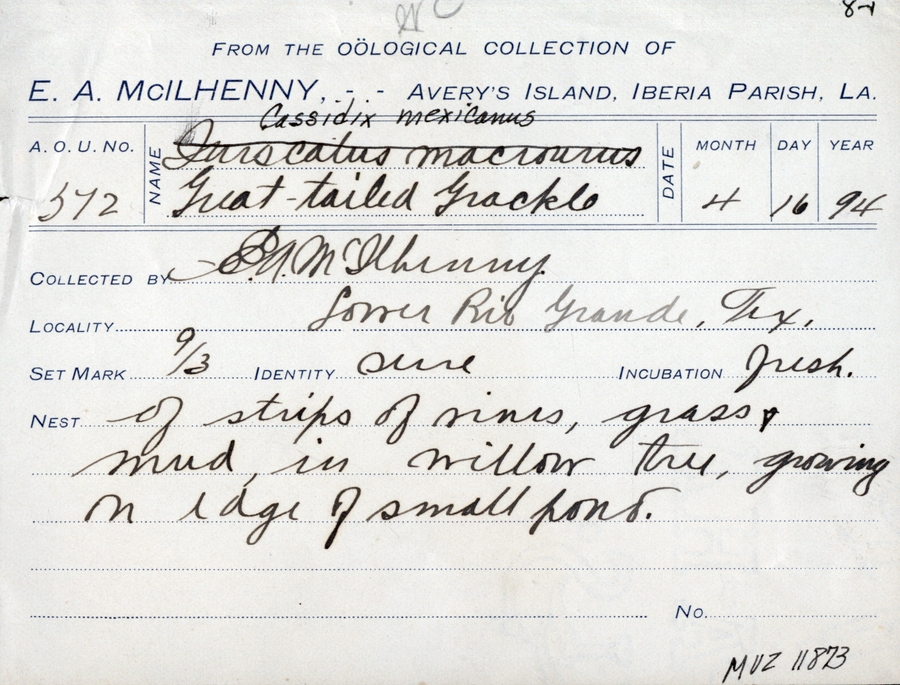 8-1
FROM THE OÖLOGICAL COLLECTION OF
E. A. McILHENNY, - - AVERY'S ISLAND, IBERIA PARISH, LA.
Cassidix mexicanus
A. O. U. NO. NAME Quiscalus macrourus DATE MONTH DAY YEAR
572 Great-tailed Grackle 4 16 94
COLLECTED BY E.A. McIlhenny.
LOCALITY Lower Rio Grande, Tex.
SET MARK 9/3 IDENTITY sure INCUBATION fresh.
NEST of strips of vines, grass,
mud, in willow tree, growing
on edge of small pond.
NO.
MVZ 11873